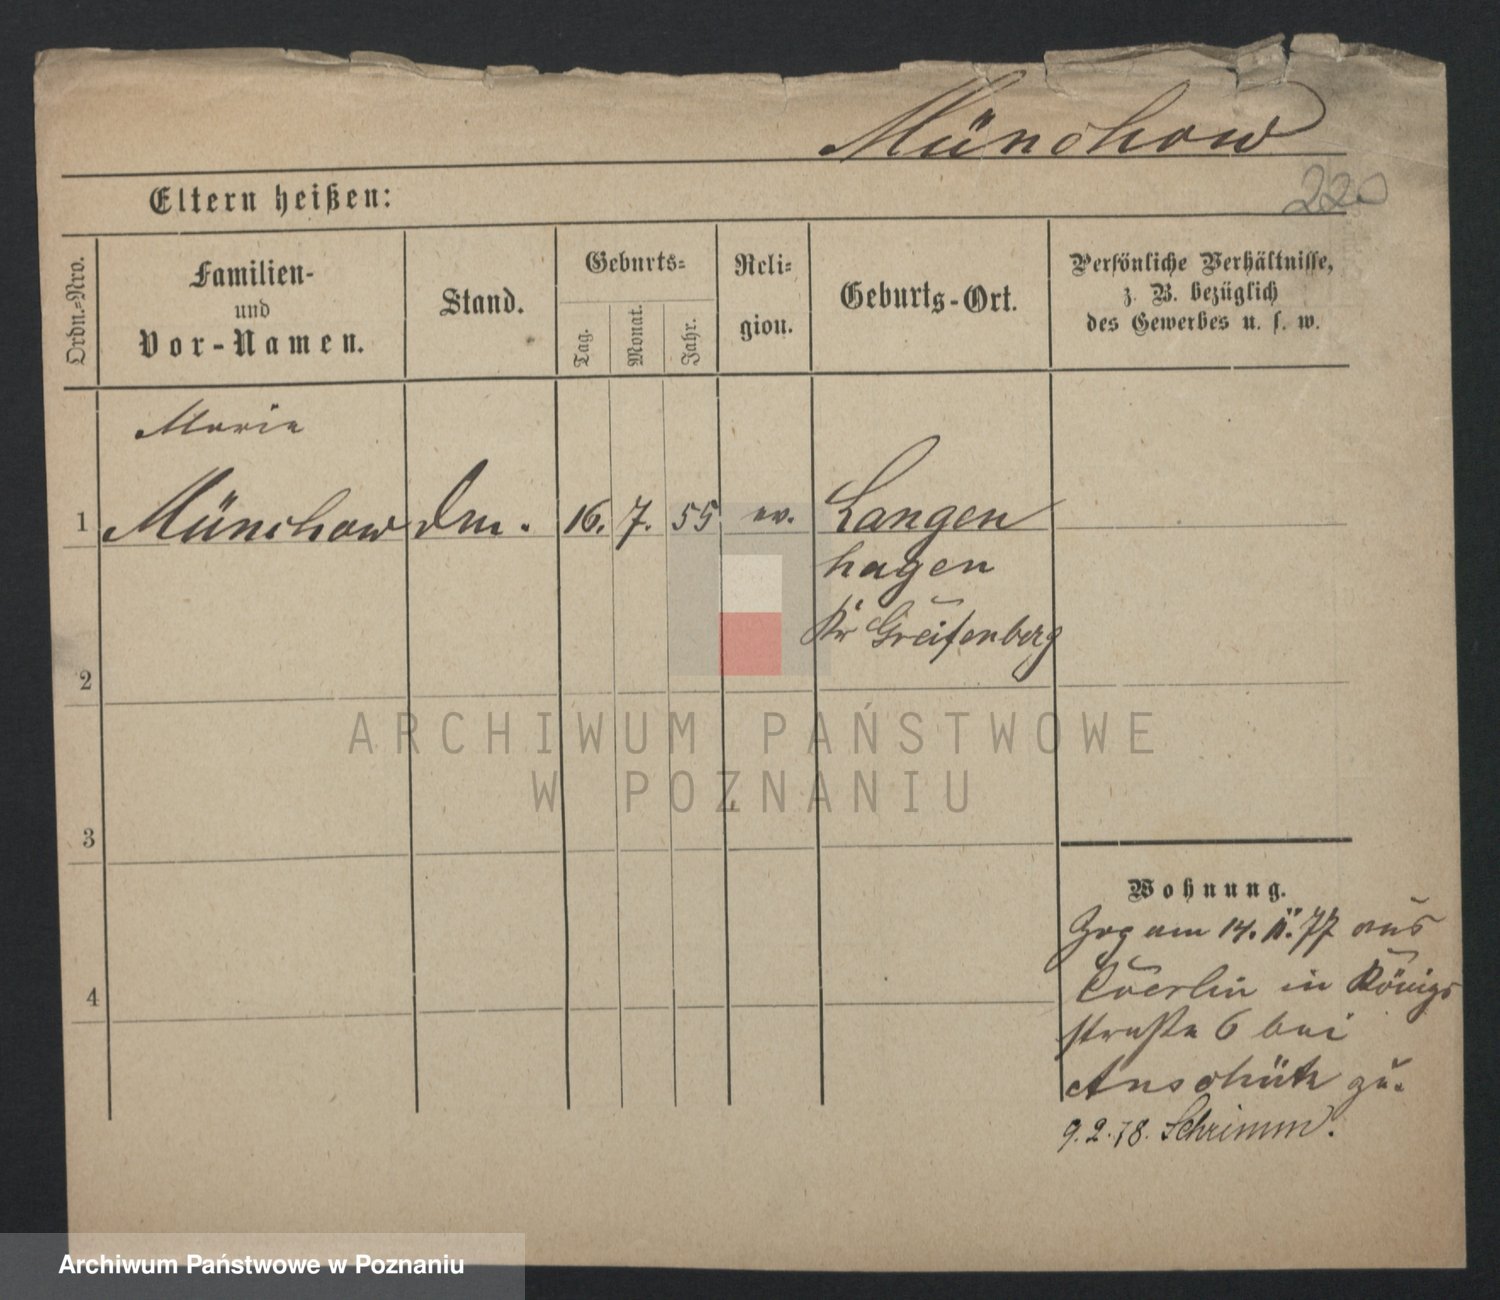 Münchow
220
Eltern heißen:
Ordn.-Nro.
Familien-
und
Vor-Namen.
Stand.
Geburts-
Tag.
Monat.
Jahr.
Reli-
gion.
Geburts-Ort.
Persönliche Verhältnisse,
z. B. bezüglich
des Gewerbes u. s. w.
Marie
1 Münchow 16. 7. 55 ev. Langen
hagen
Kr Greifenberg
2
3
4
Wohnung.
Zog am 14. 77 aus
in Königs
straße 6 bei
Anschütz zu.
9.2.78. Schrimm.
ARCHIWUM PAŃSTWOWE
W POZNANIU
Archiwum Państwowe w Poznaniu